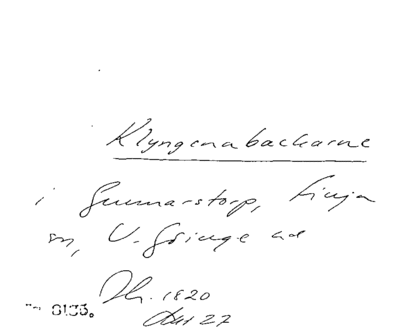 Klyngenabackarne
i Gunnarstorp, Finja
sn, V. Göinge hd
Th. 1820
27